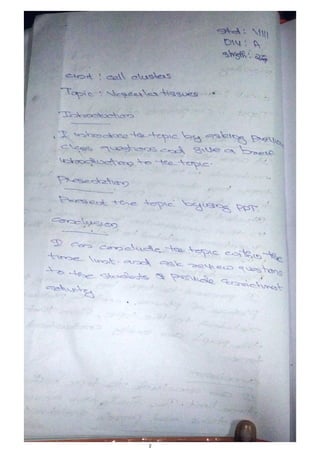 Std : VIII
DIV : A
Stgth : 25
Unit : cell clusters
Topic : Vascular tissues.
Introduction
I introduce to topic by asking previous
class questions and give a brief
introduction to the topic.
Presentation
Present the topic by using PPT.
Conclusion
I can conclude the topic within the
time limit and ask review questions
to the students & provide
activity
2